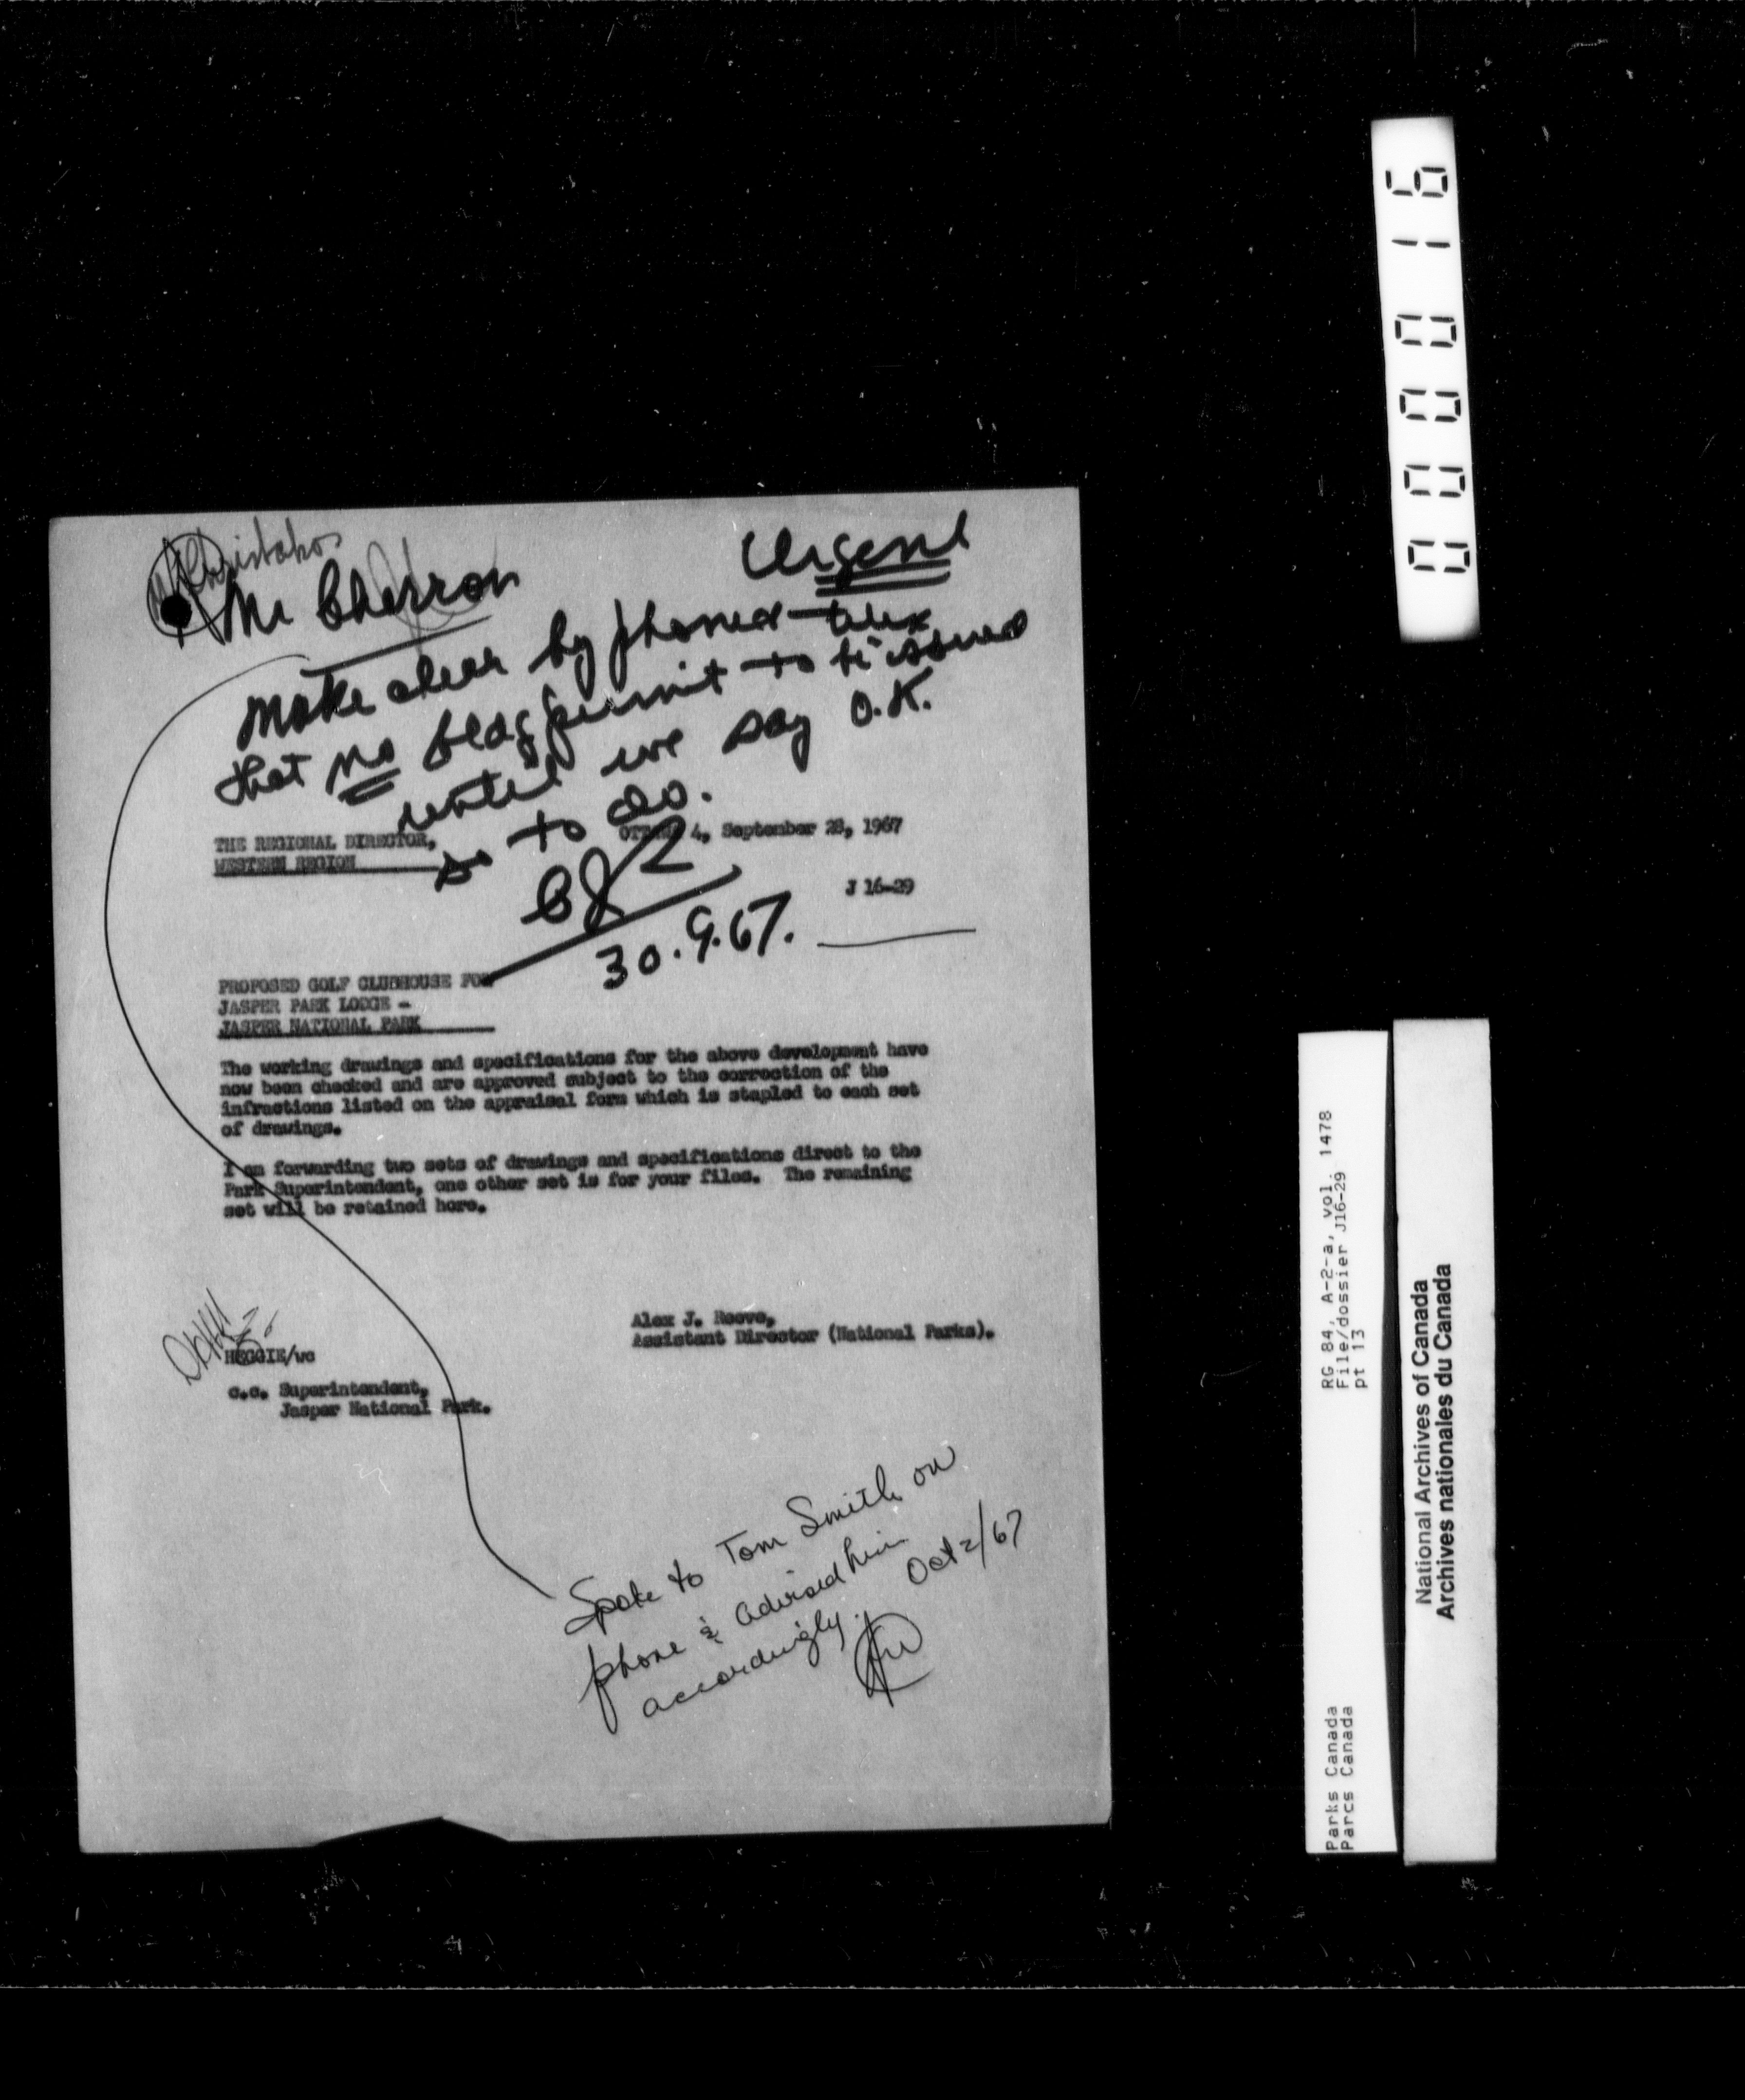 Christakos
Mr Charron
Urgent
Make clear by phone telex
that no bldg permit to be issued
until we say O.K.
so to do.
30.9.67.
THE REGIONAL DIRECTOR,
WESTERN REGION
4, September 28, 1967
J 16-29
PROPOSED GOLF CLUBHOUSE FOR
JASPER PARK LODGE -
JASPER NATIONAL PARK
The working drawings and specifications for the above development have
now been checked and are approved subject to the correction of the
infractions listed on the appraisal form which is stapled to each set
of drawings.
I am forwarding two sets of drawings and specifications direct to the
Park Superintendent, one other set is for your files. The remaining
set will be retained here.
Alex J. Reeve,
Assistant Director (National Parks).
HEGGIE/wc
c.c. Superintendent,
Jasper National Park.
Spoke to Tom Smith on
phone & advised him
accordingly. Oct 2/67
000016
RG 84, A-2-a, vol. 1478
File/dossier J16-29
pt 13
Parks Canada
Parcs Canada
National Archives of Canada
Archives nationales du Canada